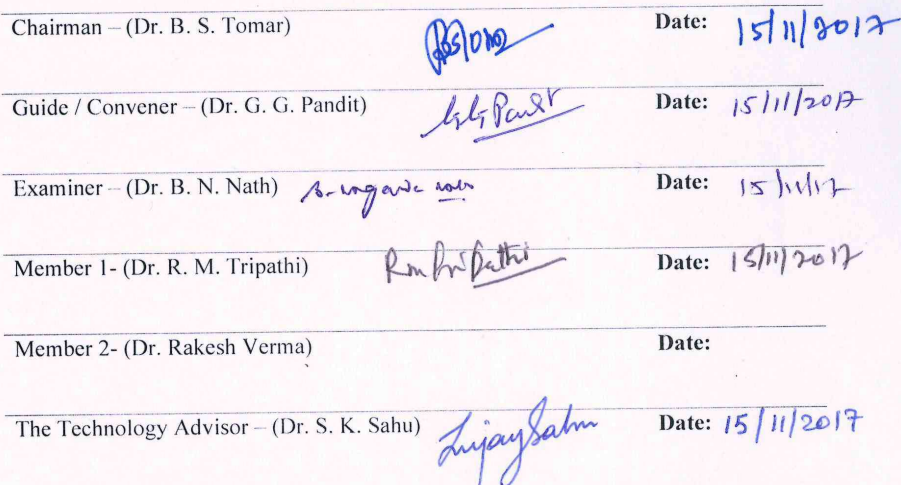 Chairman – (Dr. B. S. Tomar) Date: 15/11/2017
Guide / Convener – (Dr. G. G. Pandit) GG Pandit Date: 15/11/2017
Examiner – (Dr. B. N. Nath) Date: 15/11/17
Member 1- (Dr. R. M. Tripathi) RM Tripathi Date: 15/11/2017
Member 2- (Dr. Rakesh Verma) Date:
The Technology Advisor – (Dr. S. K. Sahu) Date: 15/11/2017